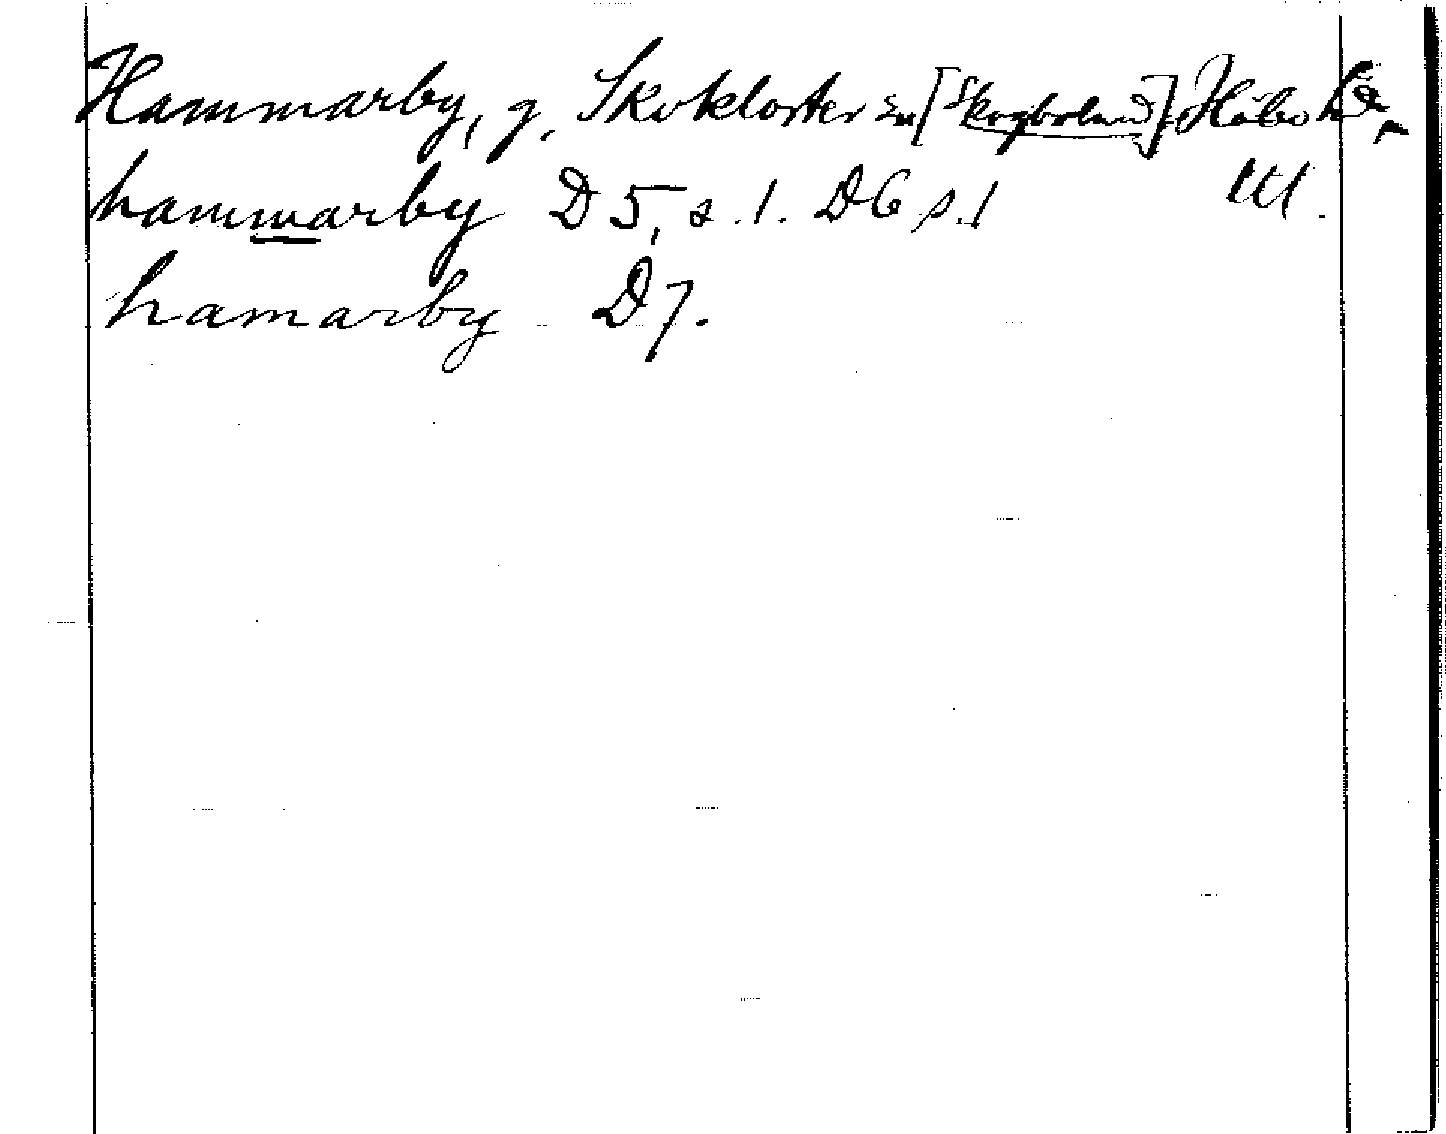 Hammarby, g. Skokloster sn [Skogbolund] Håbo hd,
hammarby D5, s. 1. D6 s. 1 Ul.
hamarby D7.